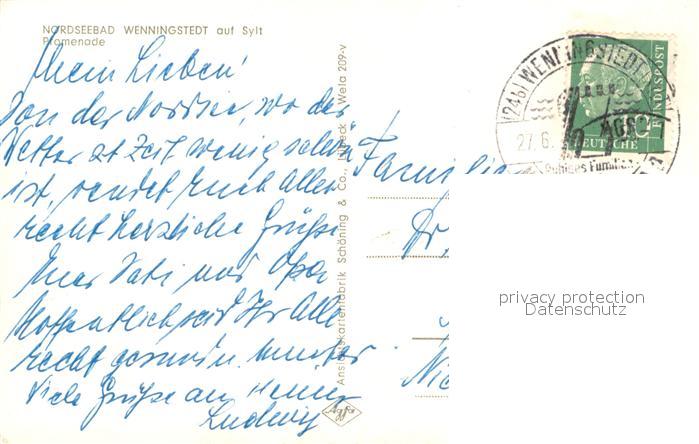 NORDSEEBAD WENNINGSTEDT auf Sylt
Promenade
Mein Lieben!
Von der Nordsee, wo das
Wetter zt Zeit wenig schön
ist, sendet Euch allen
recht herzliche Grüße
Euer Vati und Opa
Hoffentlich seid Ihr alle
recht gesund u. munter
Viele Grüße an
Ludwig
Ansichtskartenfabrik Schöning & Co., Lübeck Wela 209-v
Agfa
Familie
Dr.
(24b) WENNINGSTEDT
27.6.
DEUTSCHE
BUNDESPOST
privacy protection
Datenschutz